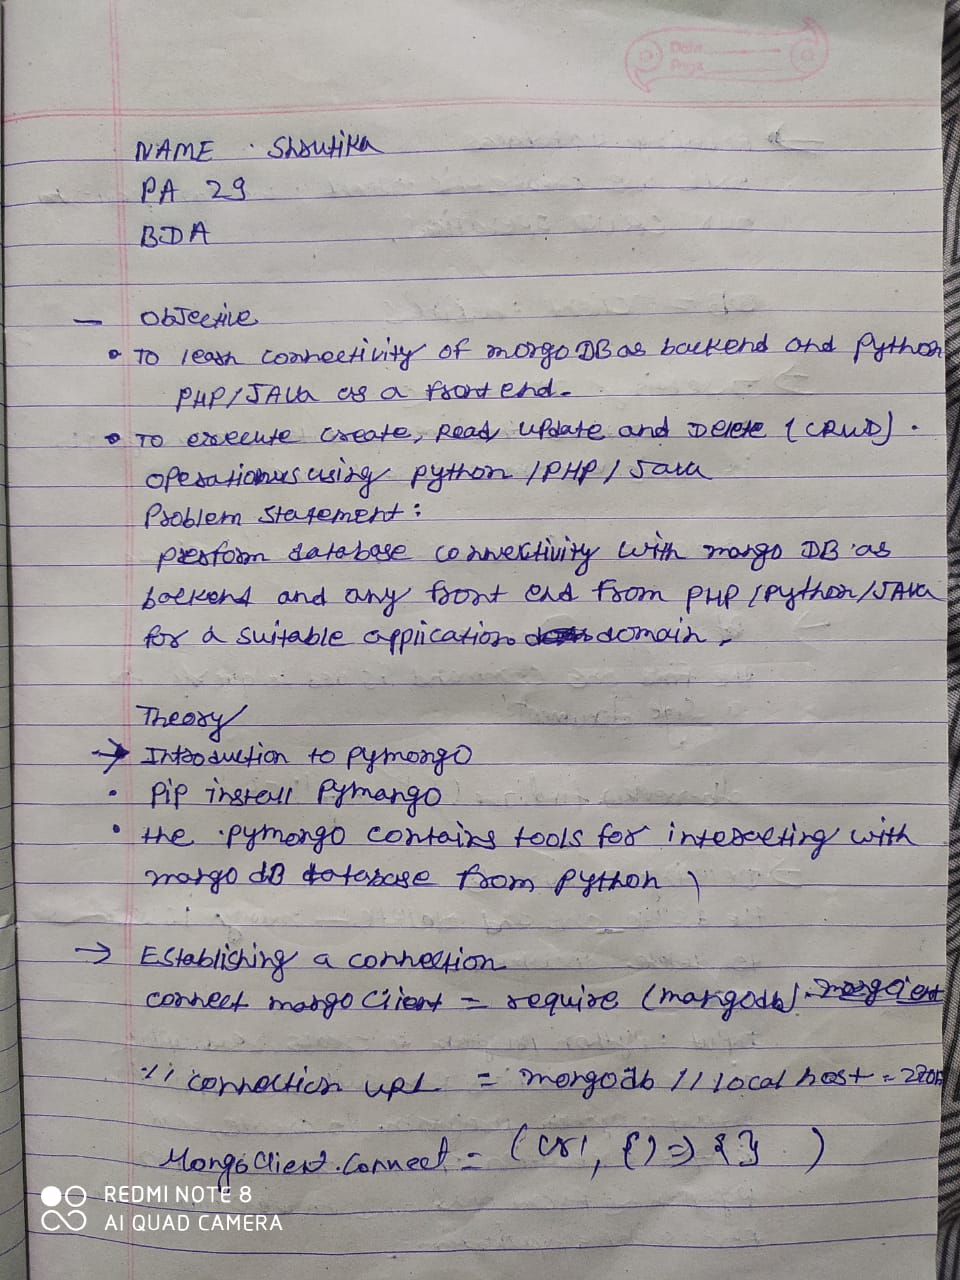 Date
Page
NAME . Shrutika
PA 29
BDA
— Objective
• To learn connectivity of mongo DB as backend and Python
PHP/JAVA as a front end.
• To execute create, Read, update and Delete (CRUD).
operations using python / PHP / Java
Problem Statement :
perform database connectivity with mongo DB as
backend and any front end from PHP / Python / JAVA
for a suitable application domain.
Theory
→ Introduction to pymongo
• Pip install Pymango
• the pymongo contains tools for interacting with
mongo dB database from python
→ Establishing a connection
connect mongo Client = require (mongodb).
// connection url = mongodb // local host =
MongoClient.connect = ( , () => { } )
REDMI NOTE 8
AI QUAD CAMERA